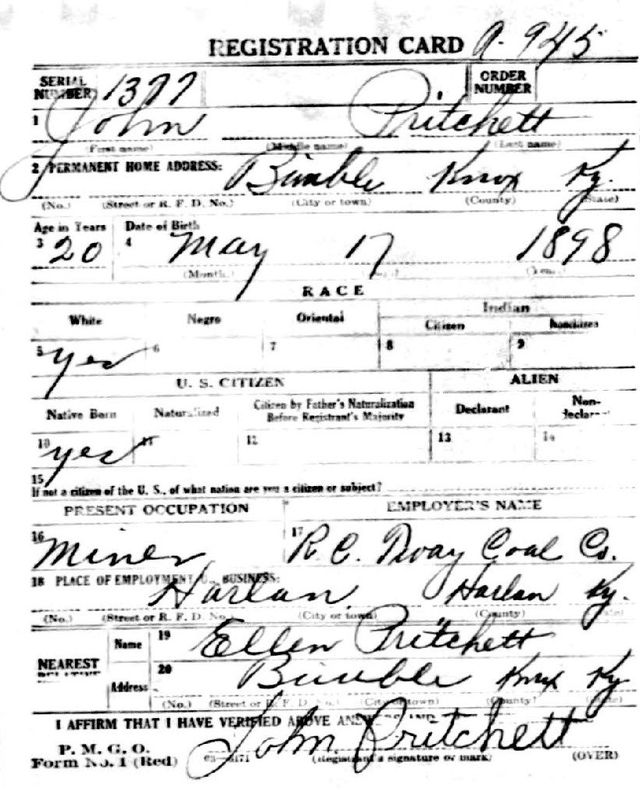 REGISTRATION CARD A-945
SERIAL NUMBER 1377 ORDER NUMBER
1 John Pritchett
(First name) (Middle name) (Last name)
2 PERMANENT HOME ADDRESS: Bimble Knox Ky.
(No.) (Street or R. F. D. No.) (City or town) (County) (State)
Age in Years Date of Birth
3 20 4 May 17 1898
(Month.)
RACE
White Negro Oriental Indian
Citizen Noncitizen
5 yes 6 7 8 9
U. S. CITIZEN ALIEN
Native Born Naturalized Citizen by Father's Naturalization Before Registrant's Majority Declarant Non-declarant
10 yes 11 12 13 14
15
If not a citizen of the U. S., of what nation are you a citizen or subject?
PRESENT OCCUPATION EMPLOYER'S NAME
16 Miner 17 R. C. Tway Coal Co.
18 PLACE OF EMPLOYMENT OR BUSINESS: Harlan Harlan Ky.
(No.) (Street or R. F. D. No.) (City or town) (County)
NEAREST RELATIVE Name 19 Ellen Pritchett
Address 20 Bimble Knox Ky
(No.) (Street or R. F. D. No.) (City or town) (County) (State)
I AFFIRM THAT I HAVE VERIFIED ABOVE
P. M. G. O.
Form No. 1 (Red) John Pritchett
(Registrant's signature or mark) (OVER)